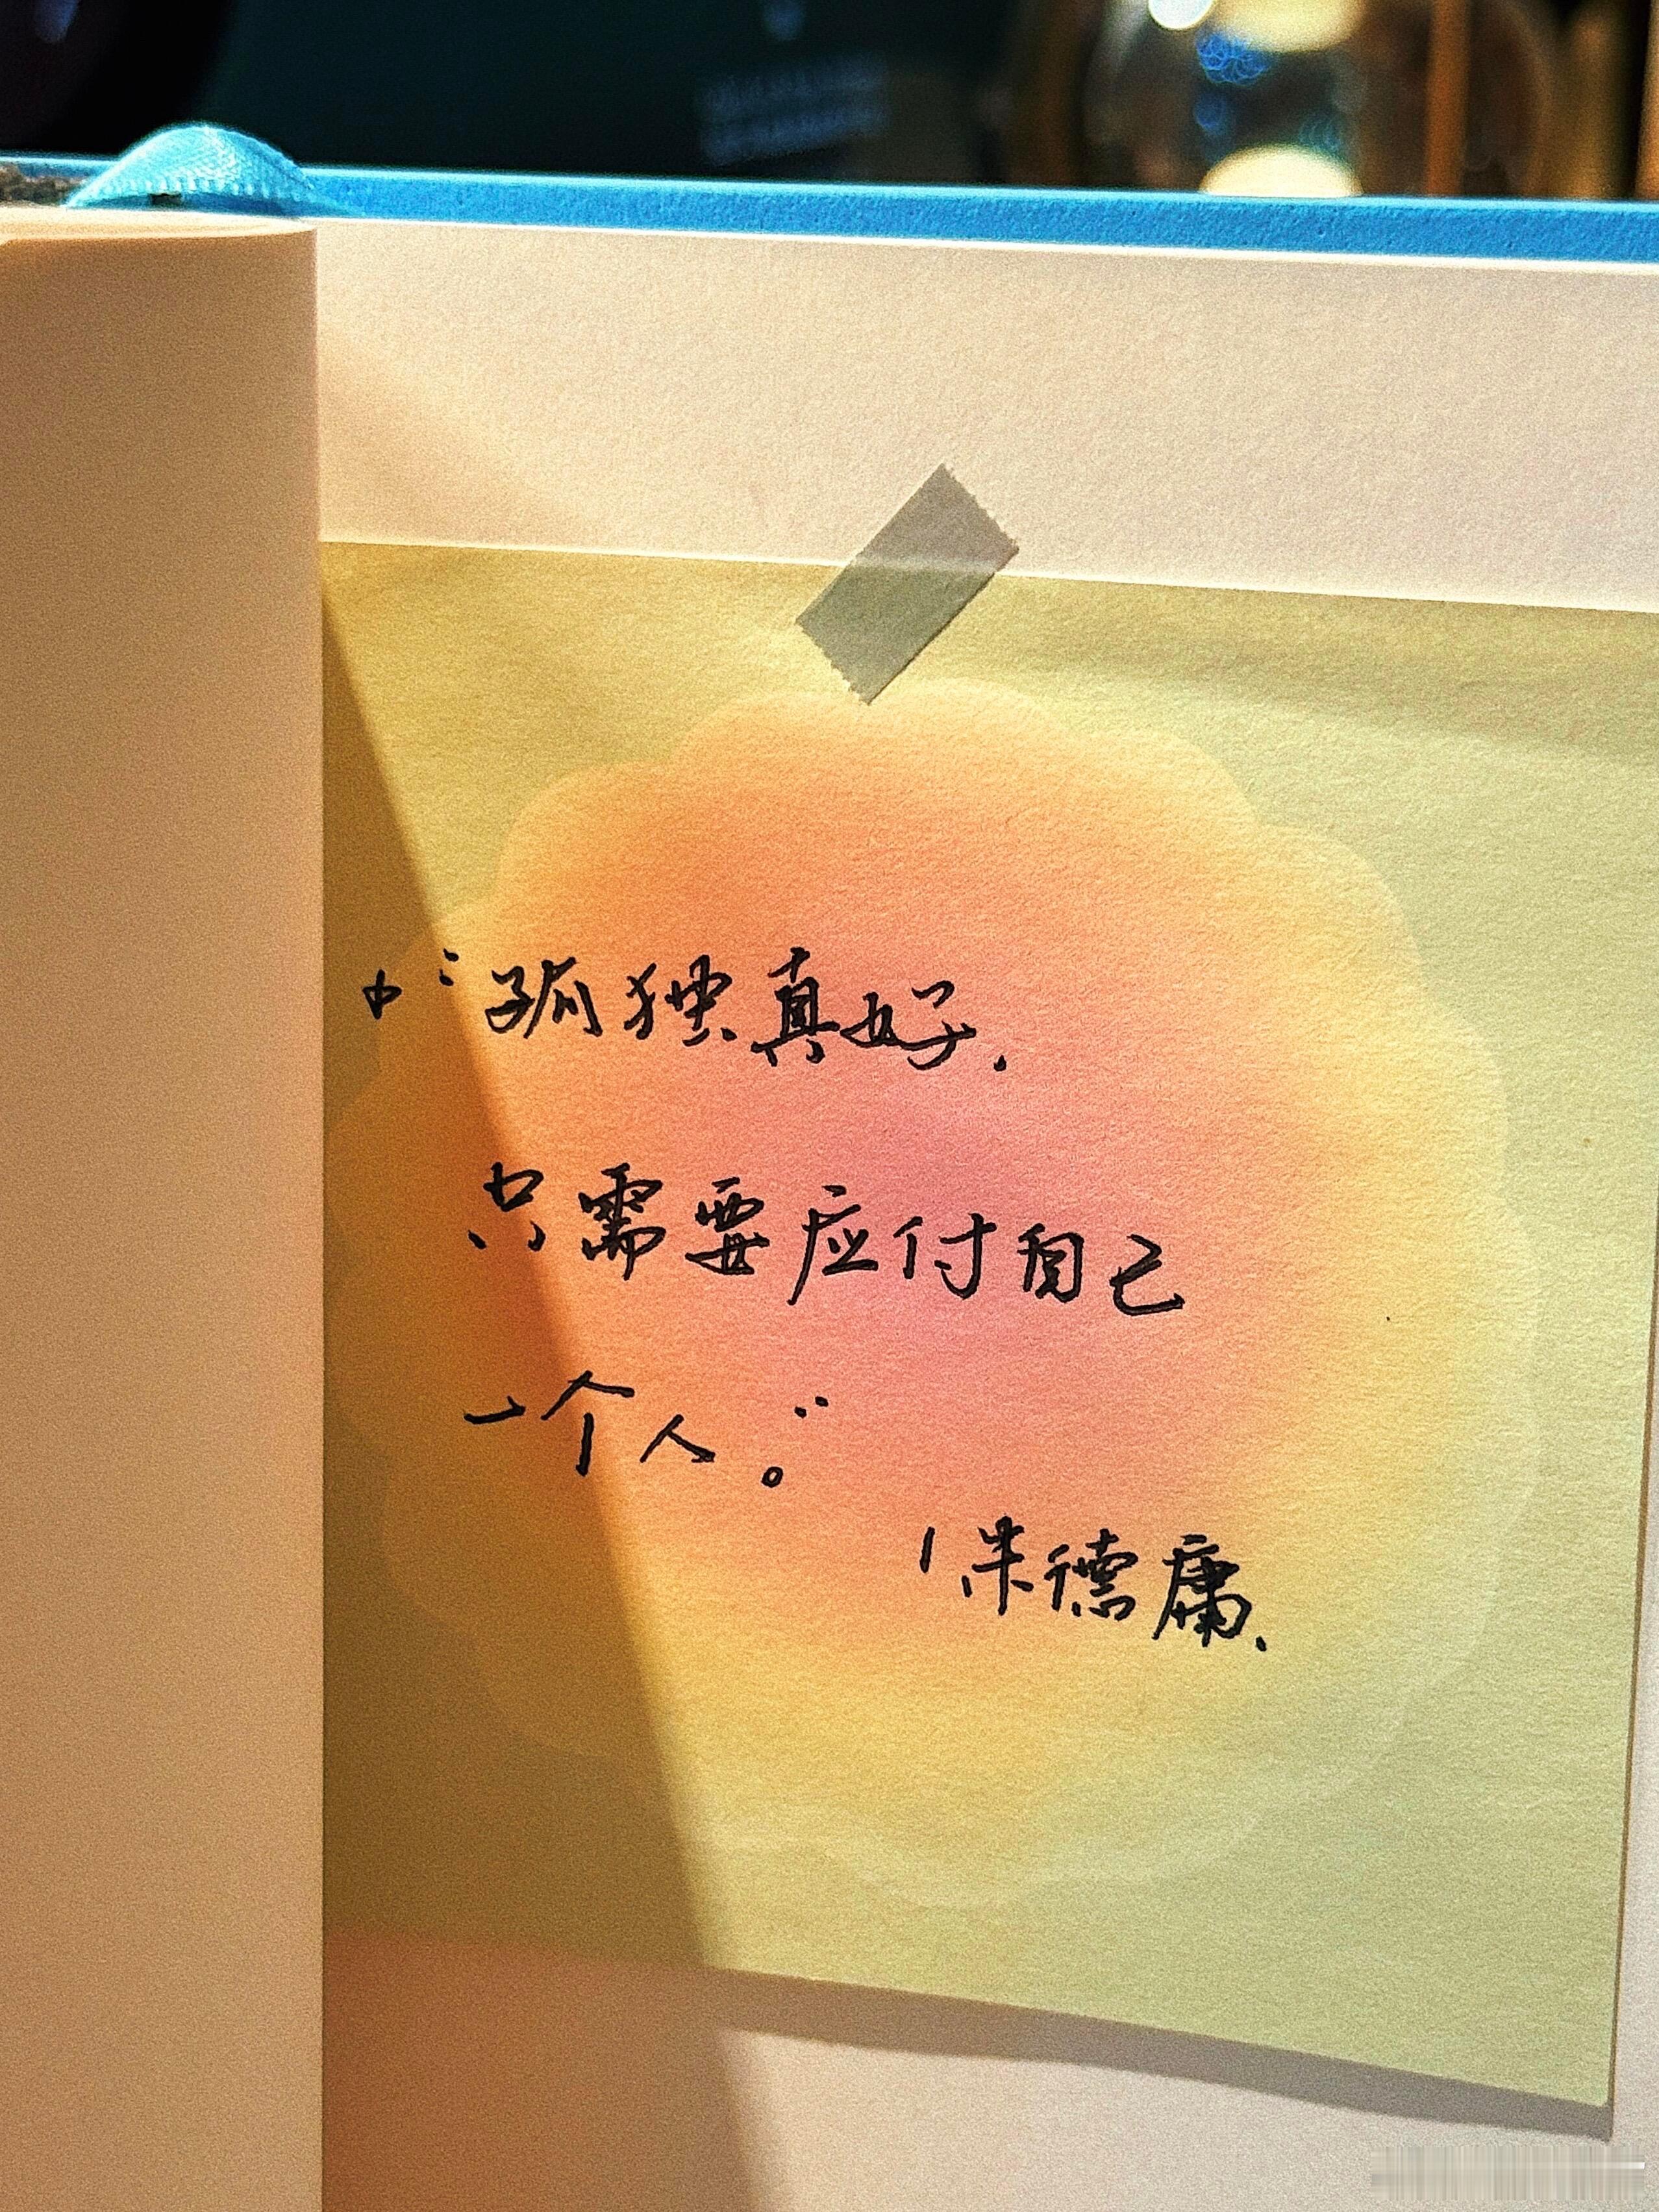 “孤独真好.
只需要应付自己
一个人。”
朱德庸.